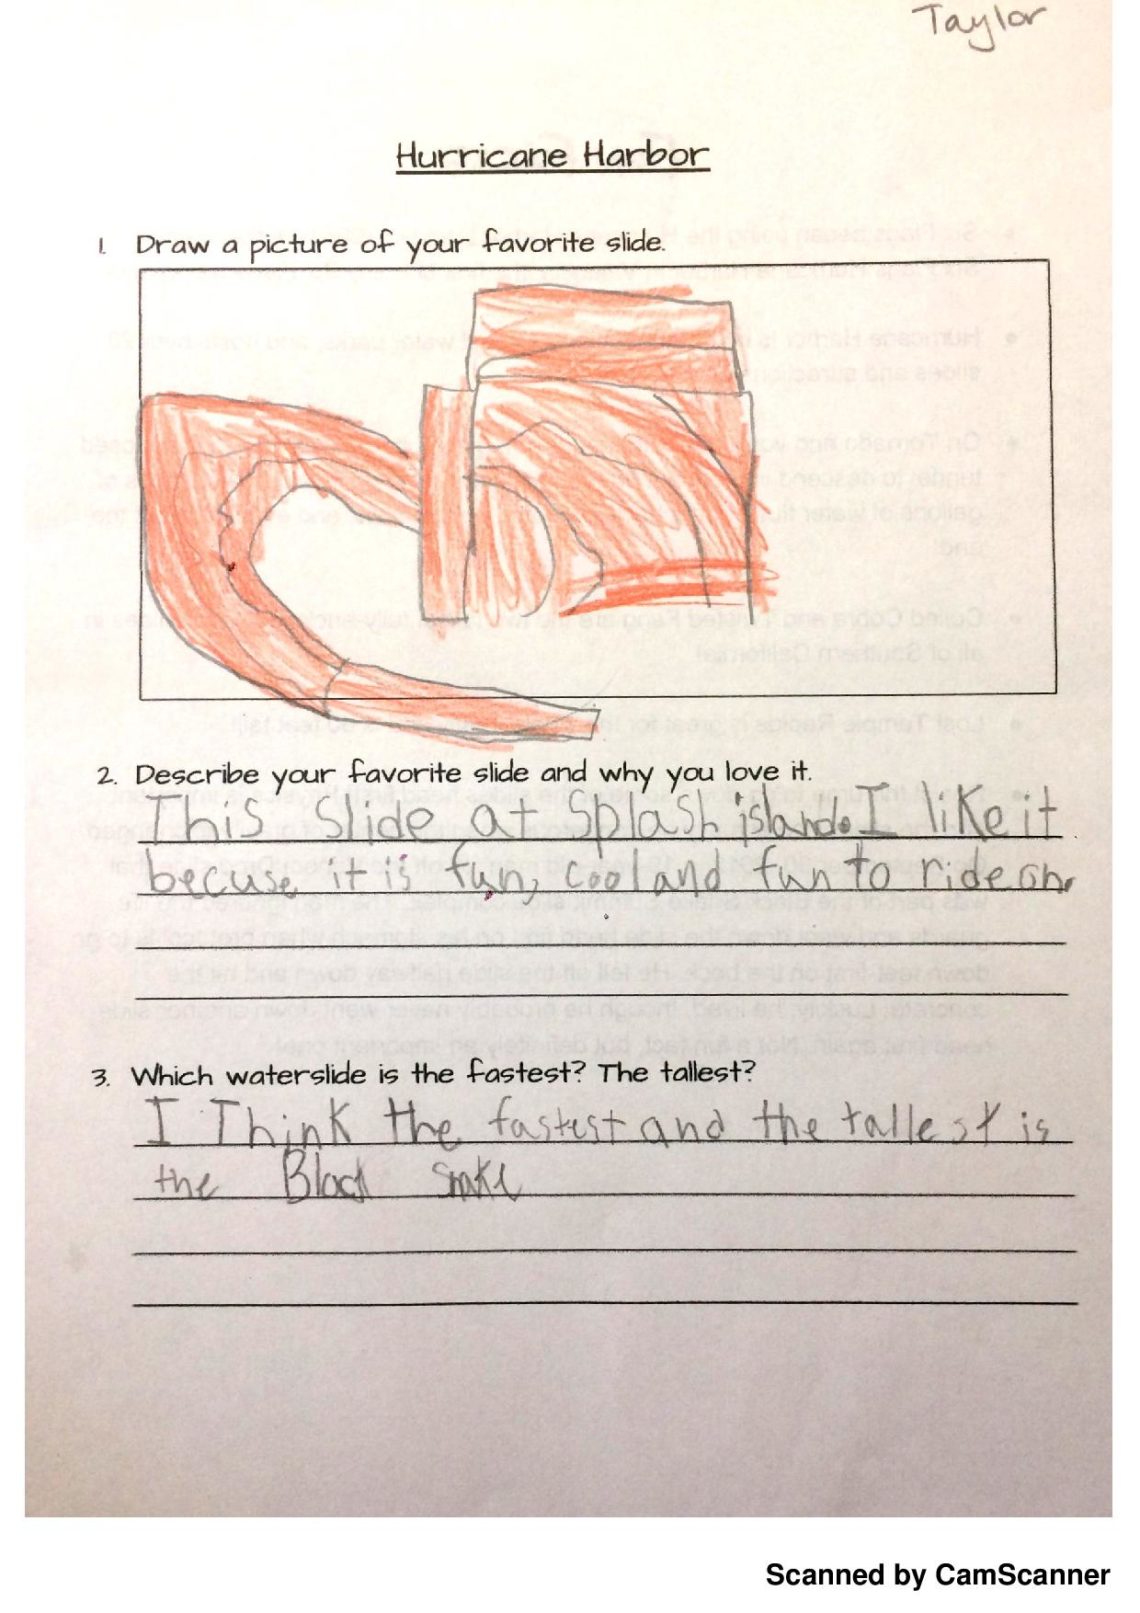 Taylor
Hurricane Harbor
1. Draw a picture of your favorite slide.
2. Describe your favorite slide and why you love it.
This Slide at Splash island. I like it
becuse it is fun, cool and fun to ride on.
3. Which waterslide is the fastest? The tallest?
I Think the fastest and the tallest is
the Black Snake
Scanned by CamScanner